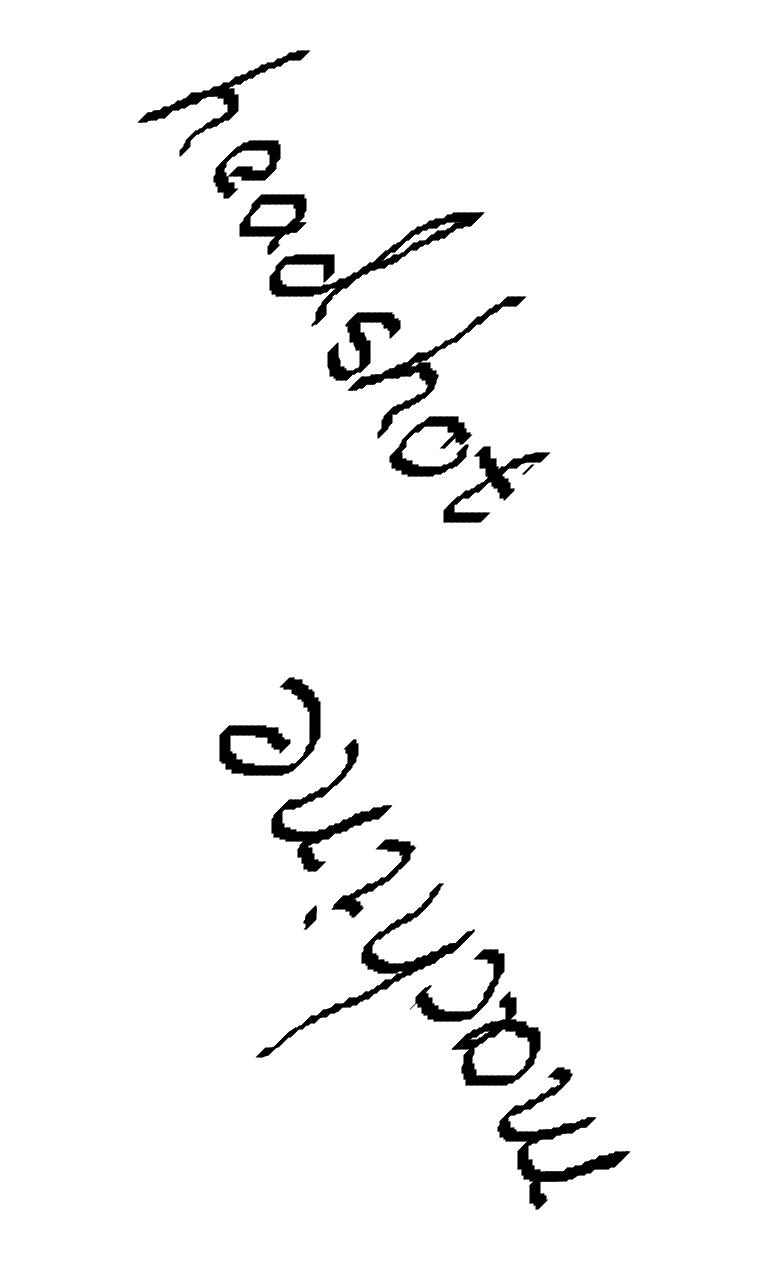 headshot
machine